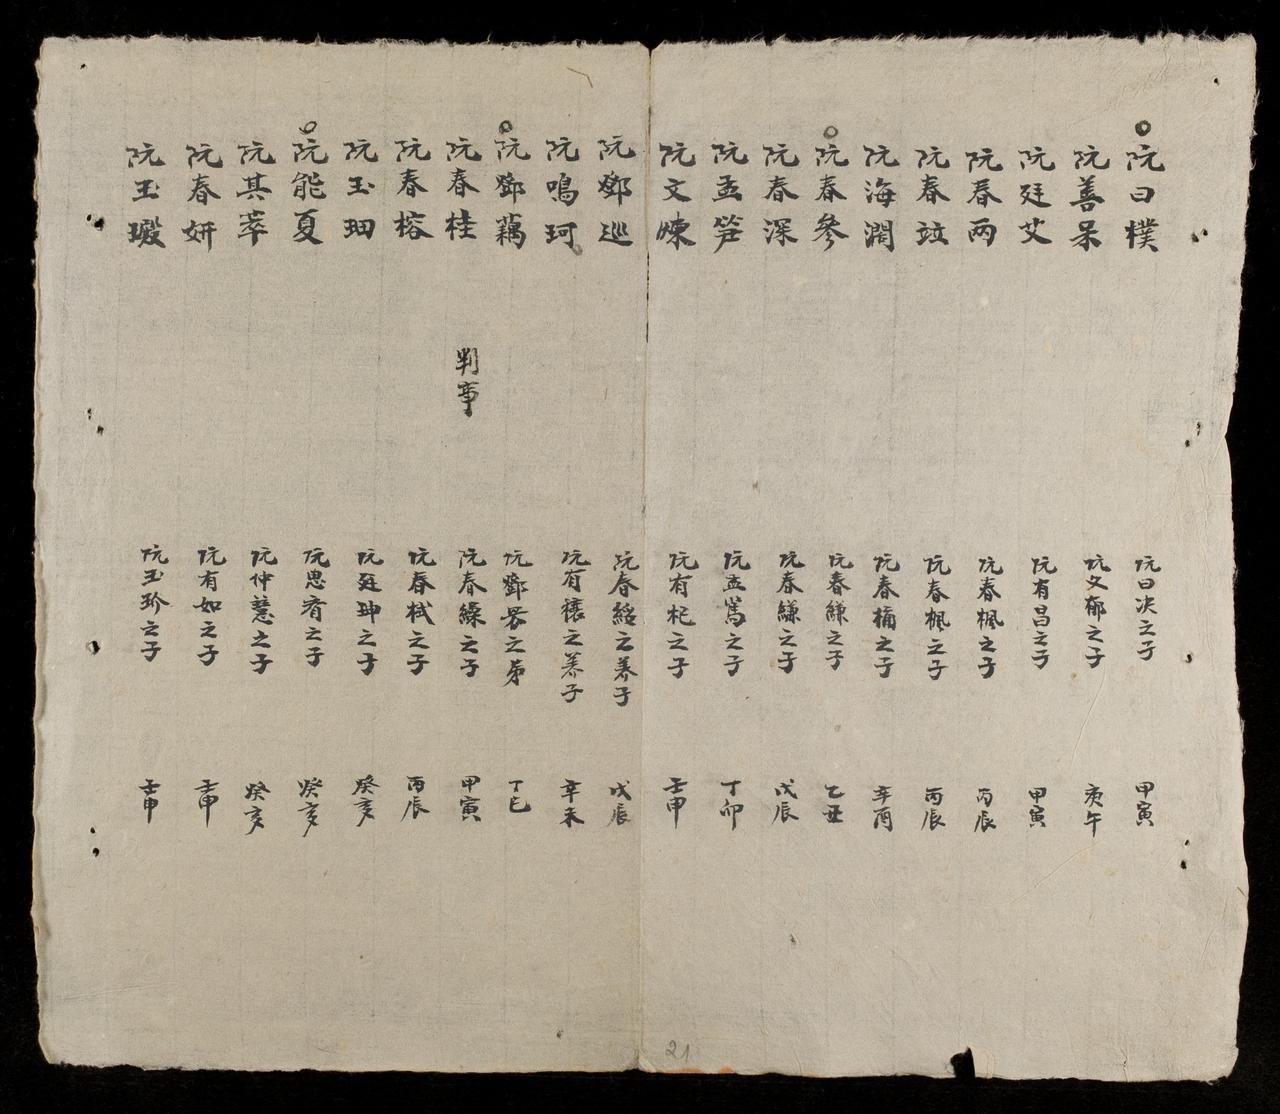 ○阮曰樸 阮曰决之子 甲寅
阮善呆 阮文郁之子 庚午
阮廷艾 阮有昌之子 甲寅
阮春両 阮春楓之子 丙辰
阮春竝 阮春楓之子 丙辰
阮海濶 阮春桶之子 辛酉
○阮春參 阮春縑之子 乙丑
阮春深 阮春縑之子 戊辰
阮孟笋 阮孟篤之子 丁卯
阮文煉 阮有杞之子 壬申
阮鄧巡 阮春紹之養子 戊辰
阮鳴珂 阮有禳之養子 辛未
○阮鄧藕 阮鄧之弟 丁巳
阮春桂 判事 阮春繰之子 甲寅
阮春榕 阮春栻之子 丙辰
阮玉珊 阮廷珅之子 癸亥
○阮能夏 阮思脊之子 癸亥
阮其萃 阮仲慧之子 癸亥
阮春妍 阮有如之子 壬申
阮玉瑖 阮玉珍之子 壬申
21